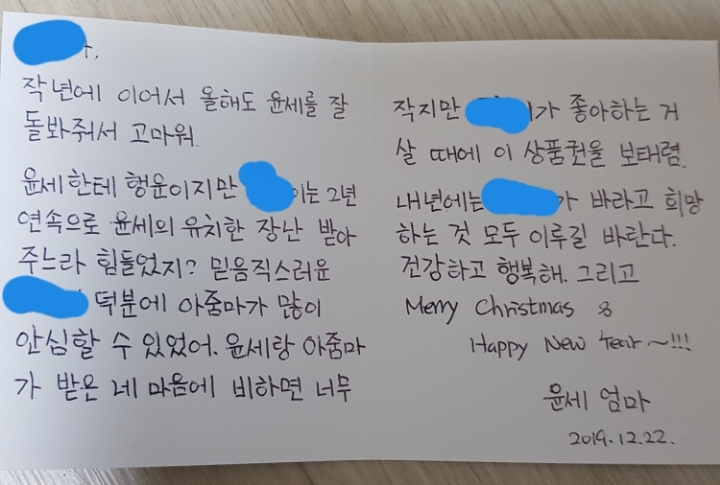 아,
작년에 이어서 올해도 윤세를 잘
돌봐줘서 고마워.
윤세한테 행운이지만 이는 2년
연속으로 윤세의 유치한 장난 받아
주느라 힘들었지? 믿음직스러운
덕분에 아줌마가 많이
안심할 수 있었어. 윤세랑 아줌마
가 받은 네 마음에 비하면 너무
작지만 이가 좋아하는 거
살 때에 이 상품권을 보태렴.
내년에는 가 바라고 희망
하는 것 모두 이루길 바란다.
건강하고 행복해. 그리고
Merry Christmas &
Happy New Year ~!!!
윤세 엄마
2019.12.22.